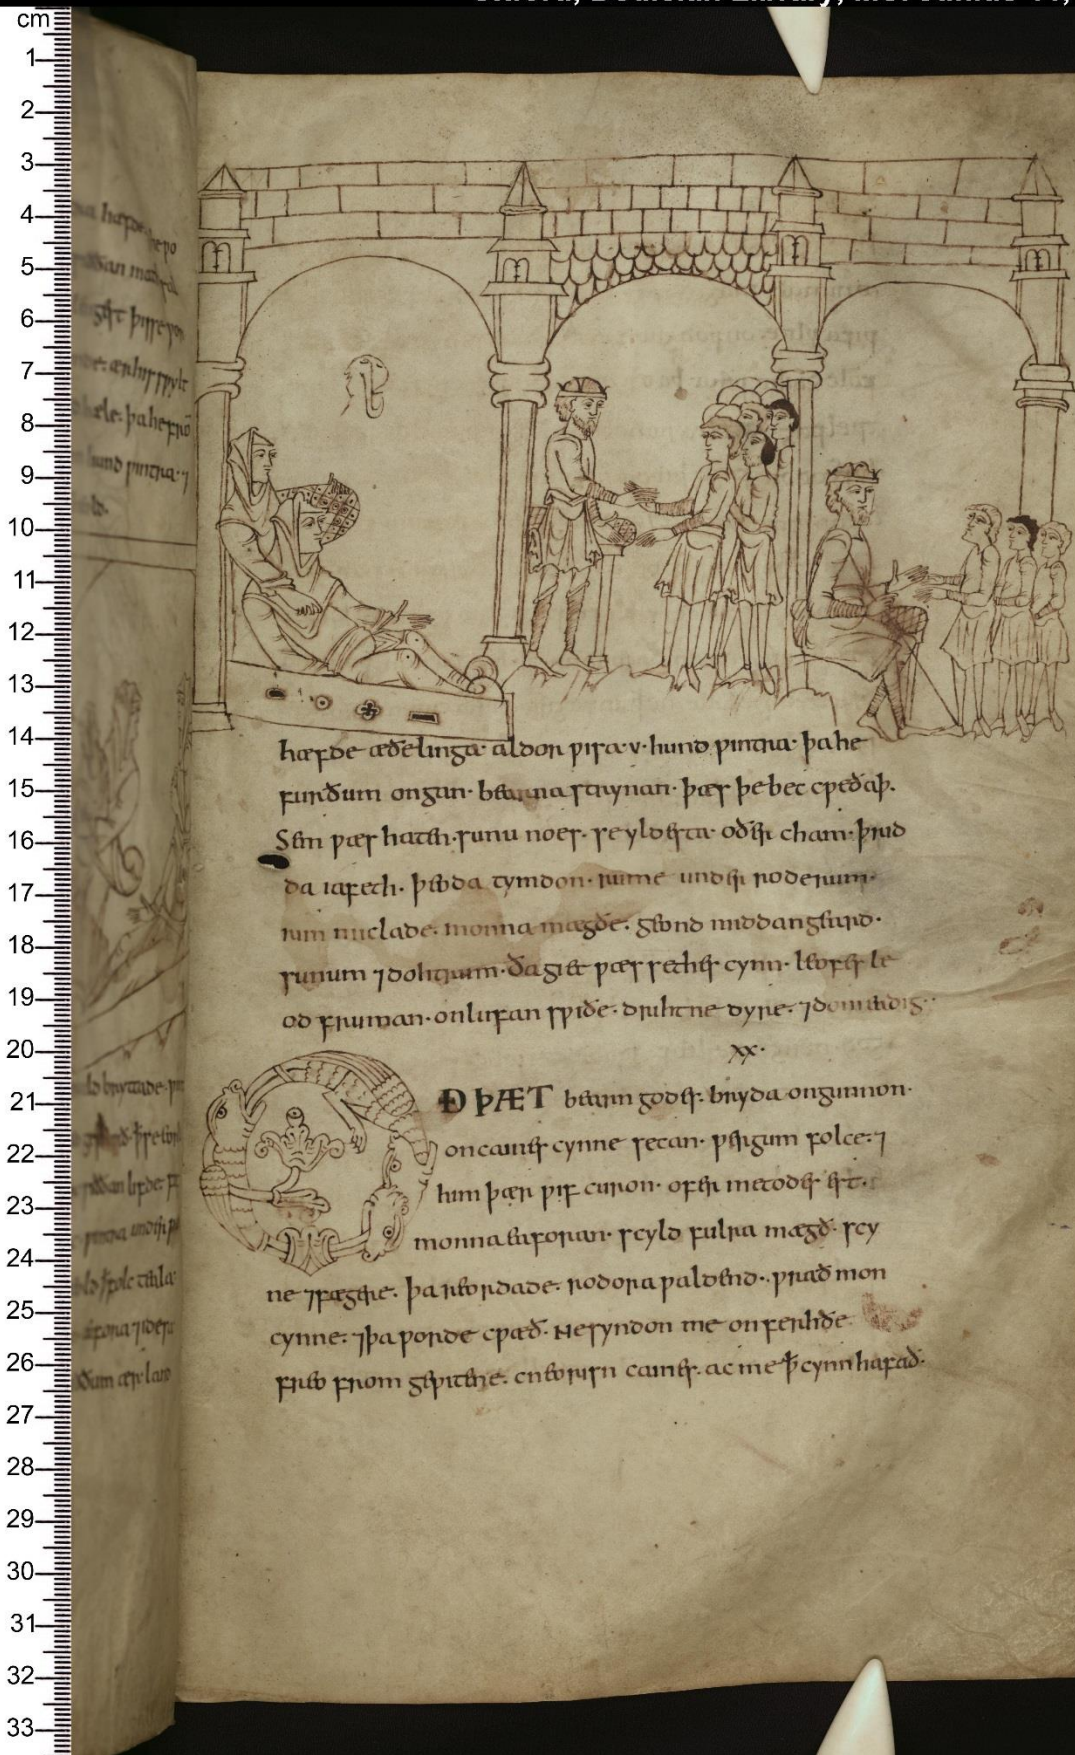 cm
1
2
3
4
5
6
7
8
9
10
11
12
13
14
15
16
17
18
19
20
21
22
23
24
25
26
27
28
29
30
31
32
33
hæfde æðelinga aldor ƿisa·v·hund ƿintra· þa he
furðum ongan· bearna strynan· þæs þe bec cƿeðaþ.
Sem ƿæs haten·sunu noes· se yldesta· oðer cham·þrid
da iafeth· þeoda tymdon· rume under roderum·
rim miclade· monna mægðe· geond middangeard·
sunum ⁊dohtrum· ða giet ƿæs sethes cynn· leofes le
od fruman· on lufan sƿiðe· drihtne dyre· ⁊domeadig·
xx·
OÐ ÞÆT bearn godes· bryda ongunnon·
on caines cynne secan· ƿergum folce·⁊
him þær ƿif curon· ofer metodes est·
monna eaforan· scyld fulra mægð· scy
ne ⁊fægere· þa reordade· rodora ƿaldend· ƿrað mon
cynne· ⁊þa ƿorde cƿæð· Ne syndon me on ferhðe
freo from geƿitene· cneorisn caines· ac me ꝥ cynn hafað·